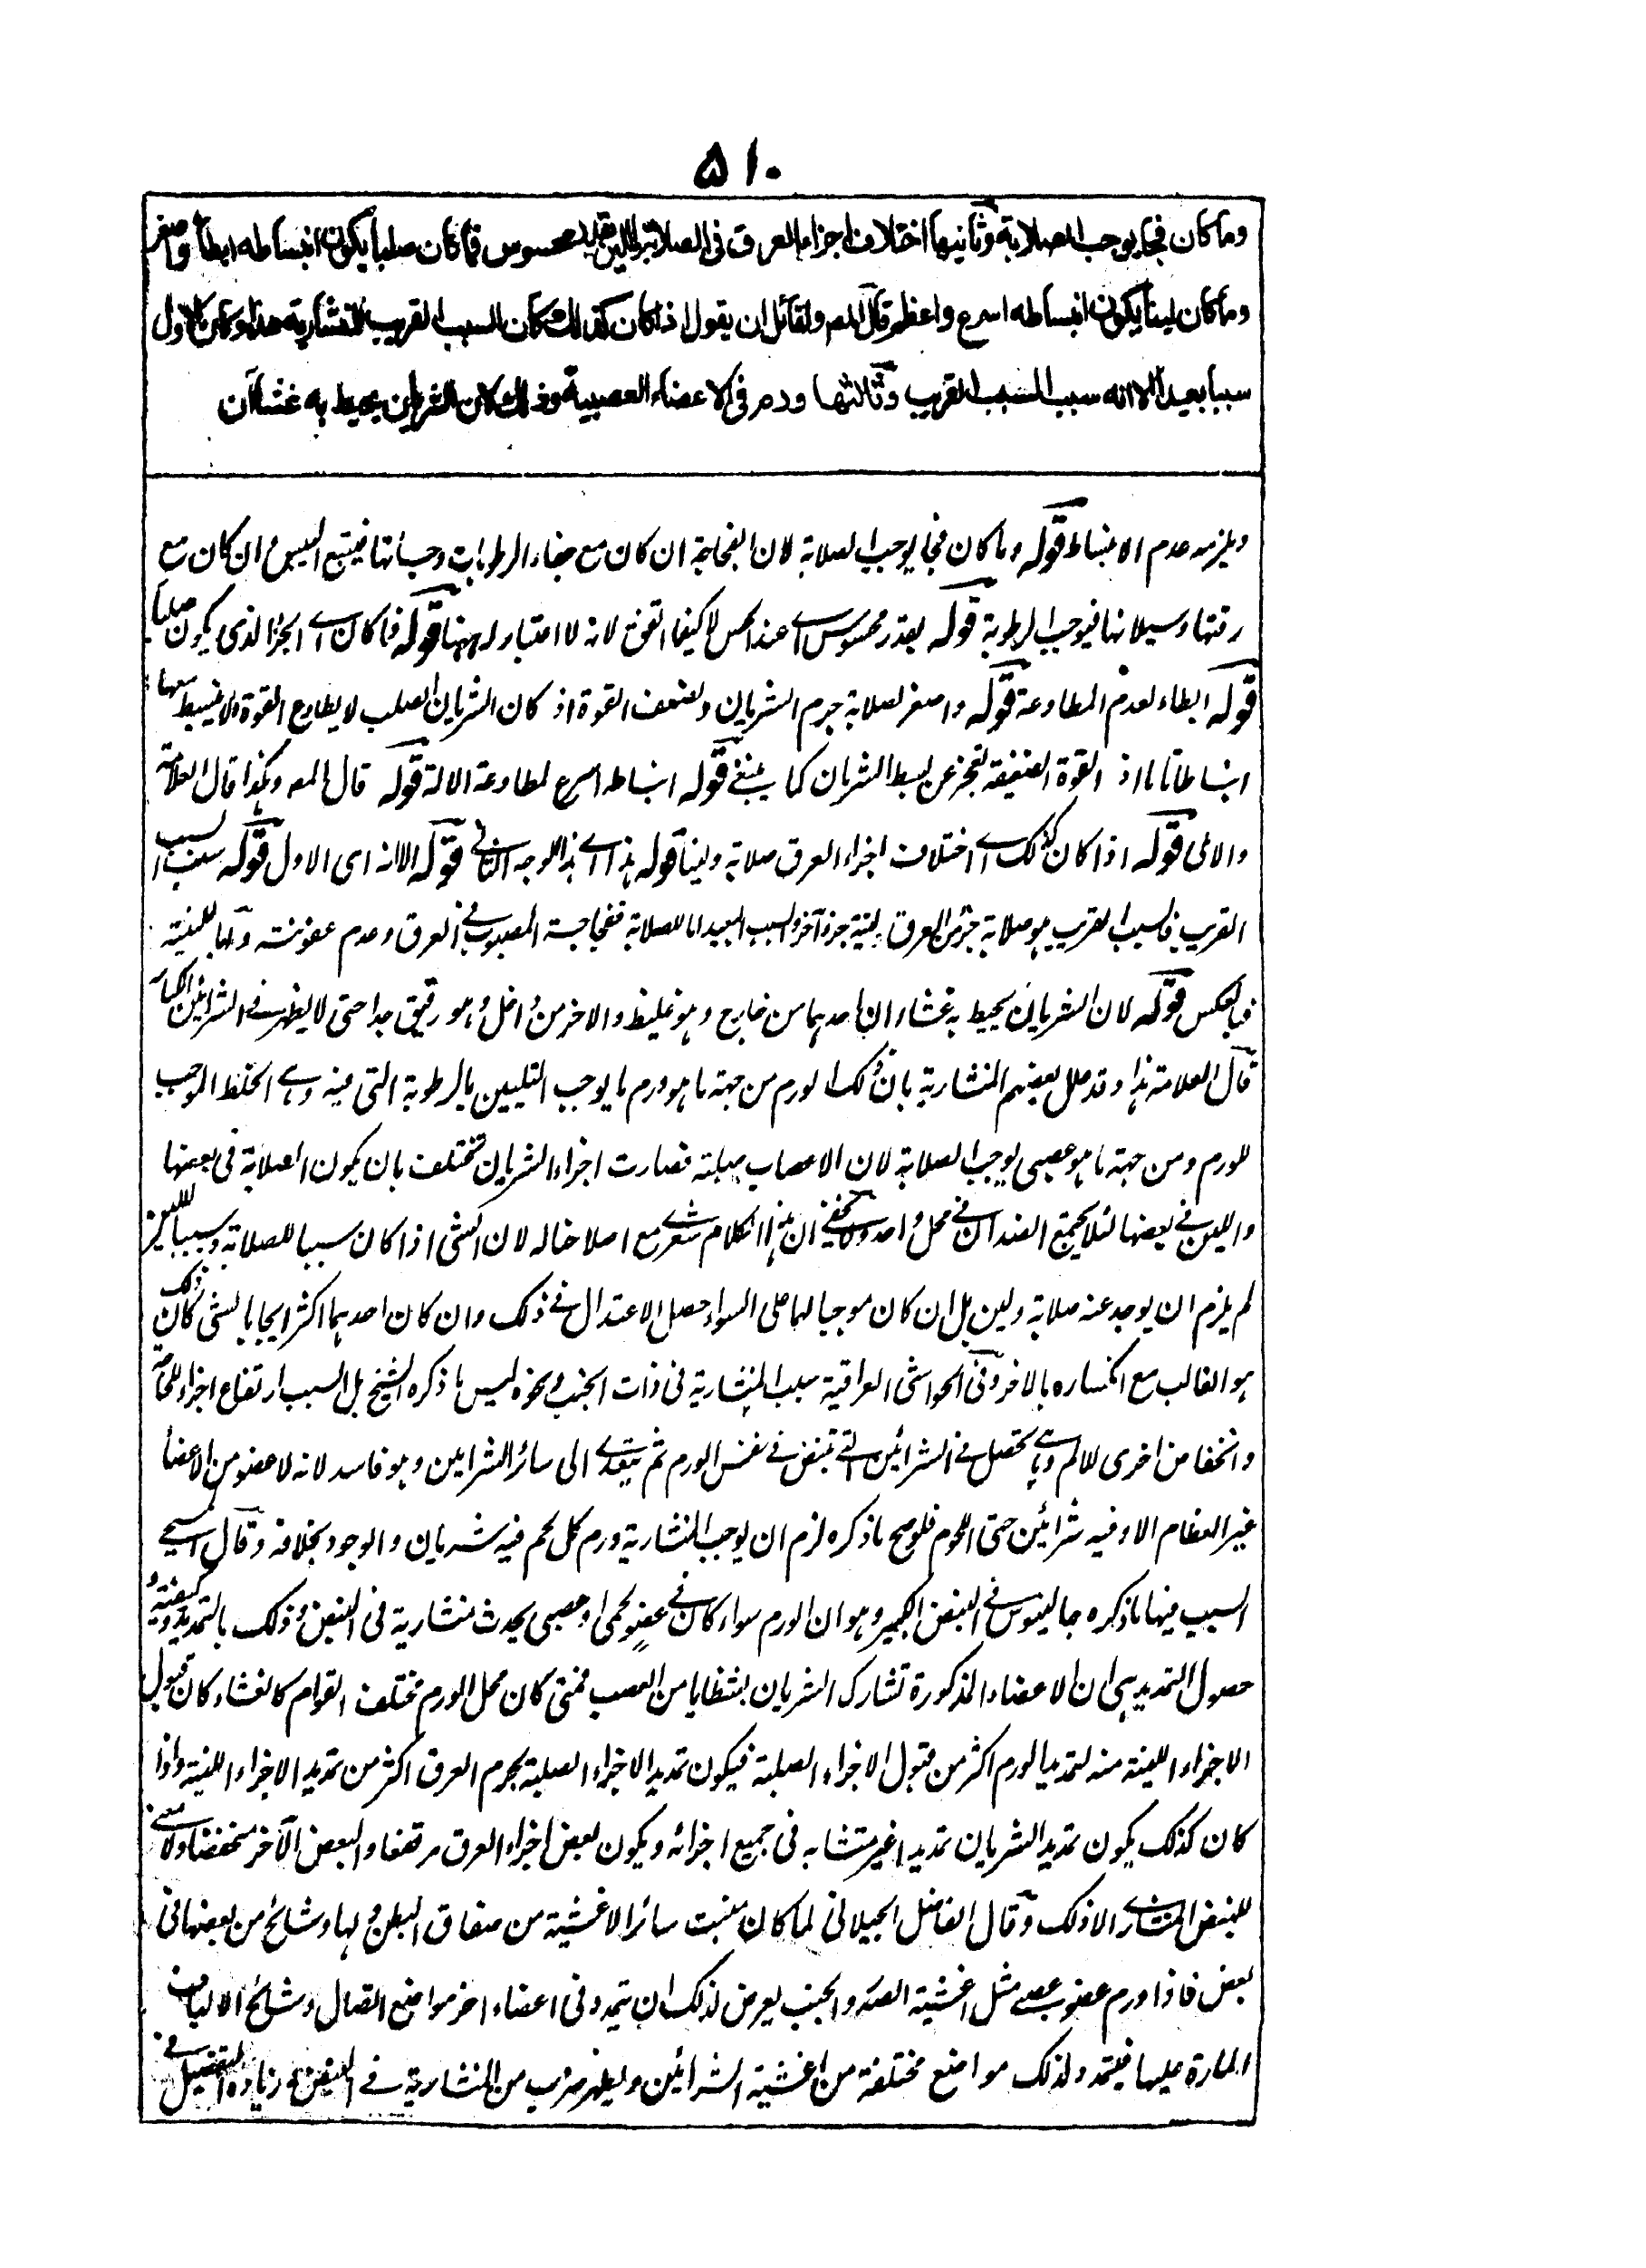 ۵۱۰
وما كان فجا يوجب الصلابة وثانيها اختلاف اجزاء العرق فى الصلابة واللين بقدر محسوس فما كان صلبا يكون انبساطه ابطأ واصغر
وما كان لينا يكون انبساطه اسرع واعظم قال المص ولقائل ان يقول اذا كان كذلك كان السبب القريب للمنشارية هذا وكان الاول
سببا بعيدا الا انه سبب السبب القريب وثالثها ورم فى الاعضاء العصبية وذلك لان الشريان يحيط به غشاآن
ويلزمه عدم الانبساط قوله وما كان فجا يوجب الصلابة لان الفجاجة ان كان مع جفاء الرطوبات وجسأتها فيتبع اليبس وان كان مع
رقتها وسيلانها فيوجب الرطوبة قوله بقدر محسوس اے عند الحس لا كيفما اتفق لانه لا اعتبار له ههنا قوله فما كان اے الجزا لذى يكون صلبا
قوله ابطاء لعدم المطاوعة قوله واصغر لصلابة جرم الشريان ولضعف القوة اذ كان الشريان الصلب لا يطاوع القوة ولا ينبسط معها
انبساطا تاما اذ القوة الضعيفة تعجز عن بسط الشريان كما ينبغى قوله انبساطه اسرع لمطاوعة الالة قوله قال المص وهكذا قال العلامة
والاملى قوله اذا كان كذلك اے اختلاف اجزاء العرق صلابة ولينا قوله هذا اے هذا الوجه الثانى قوله الا انه اى الاول قوله سبب السبب
القريب فالسبب القريب هو صلابة جزء من العرق ولينة جزء آخر والسبب البعيد اما للصلابة ففجاجة المصبوب فى العرق وعدم عفونته واما للينية
فبالعكس قوله لان الشريان يحيط به غشاء ان احدهما من خارج وهو غليظ والاخر من داخل وهو رقيق جدا حتى لا يظهر فى الشرائين الكبار
قال العلامة هذا وقد علل بعضهم المنشارية بان ذلك الورم من جهة ما هو ورم ما يوجب التليين بالرطوبة التى فيه وهے الخلط الموجب
للورم ومن جهة ما هو عصبى يوجب الصلابة لان الاعصاب صلبة فصارت اجزاء الشريان تختلف بان يكون الصلابة فى بعضها
واللين فى بعضها لئلا يجتمع الضدان فى محل واحد ولا يخفى ان هذا الكلام شعرے مع اصلاحنا له لان الشئ اذا كان سببا للصلابة وسببا للين
لم يلزم ان يوجد عنه صلابة ولين بل ان كان موجبا لهما على السواء حصل الاعتدال فى ذلك وان كان احدهما اكثر ايجابا لشئ كان ذلك
هو الغالب مع انكساره بالاخر وفى الحواشى العراقية سبب المنشارية فى ذات الجنب ونحوه ليس ما ذكره الشيخ بل السبب ارتفاع اجزاء
وانخفاض اخرى للالم وهے تحصل فى الشرائين التے تنبض فى نفس الورم ثم يتعدے الى سائر الشرايين وهو فاسد لانه لا عضو من الاعضا
غير العظام الا وفيه شرائين حتى اللحوم فلو صح ما ذكره لزم ان يوجب المنشارية ورم كل لحم فيه شريان والوجود بخلافه وقال المسيحے
السبب فيها ما ذكره جالينوس فى النبض الكبير وهو ان الورم سواء كان فى عضو لحمى او عصبى يحدث منشارية فى النبض وذلك بالتمديد وكيفية
حصول التمديد هى ان الاعضاء المذكورة تشارك الشريان بشظايا من العصب فمتى كان محل الورم مختلف القوام كالغشاء كان قبول
الاجزاء اللينة منه لتمديد الورم اكثر من قبول الاجزاء الصلبة فيكون تمديد الاجزاء الصلبة لجرم العرق اكثر من تمديد الاجزاء اللينة واذا
كان كذلك يكون تمديد الشريان تمديدا غير متشابه فى جميع اجزائه ويكون بعض اجزاء العرق مرتفعا والبعض الآخر منخفضا ولا معنى
للنبض المنشارے الا ذلك وقال الفاضل الجيلانى لما كان منبت سائر الاغشية من صفاق البطن ولها وشائج من بعضها فى
بعض فاذا ورم عضو عصبى مثل اغشية الصدر والجنب يعرض لذلك ان يتمدد فى اعضاء اخر مواضع اتصال وشائج الالياف
المارة عليها فيتمدد لذلك مواضع مختلفة من اغشية الشرائين ويظهر ضرب من المنشارية فى النبض وزيادة التفصيل فى